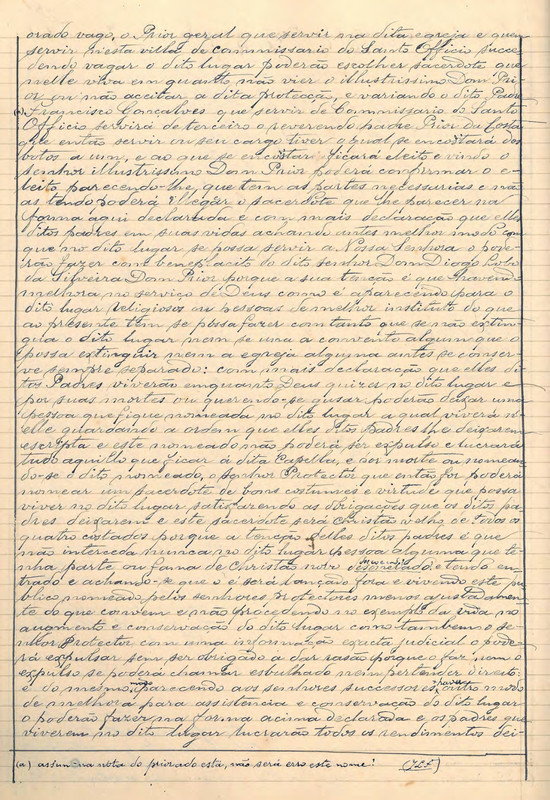 orado vago, o Prior geral que servir na dita egreja e quem
servir nesta villa de commissario do Santo Officio succe-
dendo vagar o dito lugar poderão escolher sacerdote que
nelle viva em quanto não vier o illustrissimo Dom Pri-
or ou não aceitar a dita protecção, e variando o dito Padre
(a) Francisco Gonçalves que servir de Commissario do Santo
Officio servirá de terceiro o reverendo padre Prior da Costa
que então servir ou seu cargo tiver o qual se encostará dos
votos a um, e ao que se encostar ficará eleito e vindo o
senhor illustrissimo Dom Prior poderá confirmar o e-
leito parecendo-lhe, que tem as partes necessarias e não
as tendo poderá eleger o sacerdote que lhe parecer na
forma aqui declarada e com mais declaração que elles
ditos padres em suas vidas achando antes melhor modo com
que no dito lugar se possa servir a Nossa Senhora o pode-
rão fazer com beneplacito do dito senhor Dom Diogo Lobo
da Silveira Dom Prior porque a sua tenção é que havendo
melhora no serviço de Deus como é apparecendo para o
dito lugar religiosos ou pessoas de melhor instituto do que
ao presente tem se possa fazer com tanto que se não extin-
guia o dito lugar nem se una a convento algum que o
possa extinguir nem a egreja alguma antes se conser-
ve sempre separado: com mais declaração que elles di-
tos Padres viverão emquanto Deus quizer no dito lugar e
por suas mortes ou querendo-se ausar poderão deixar uma
pessoa que fique nomeada no dito lugar a qual viverá n'-
elle guardando a ordem que elles ditos padres lhe deixarem
escripta e este nomeado não poderá ser expulso e lucrará
tudo aquillo que ficar á dita Capella, e por morte ou nomean-
do-se o dito nomeado, o senhor Protector que então for poderá
nomear um sacerdote de bons costumes e virtude que possa
viver no dito lugar satisfazendo as obrigações que os ditos pa-
dres deixarem e este sacerdote será Christão velho de todos os
quatro costados porque a tenção d'elles ditos padres é que
não interceda nunca no dito lugar pessoa alguma que te-
nha parte ou fama de Christão novo e tendo en-
trado e achando-se que o é será lançado fora e vivendo este pu-
blico nomeado pelos senhores Protectores menos ajustadamen-
te do que convem e não procedendo no exemplo da vida no
augmento e conservação do dito lugar como tambem o se-
nhor Protector com uma informação exacta judicial o pode-
rá expulsar sem ser obrigado a dar rasão porque o faz, nem o
expulso se poderá chamar esbulhado nem pertender direito:
e do mesmo modo parecendo aos senhores successores haver outro modo
de melhora para assistencia e conservação do dito lugar
o poderão fazer na forma acima declarada e os padres que
viverem no dito lugar lucrarão todos os rendimentos dei-
(a) assim na nota do priorado está, não será erro este nome?